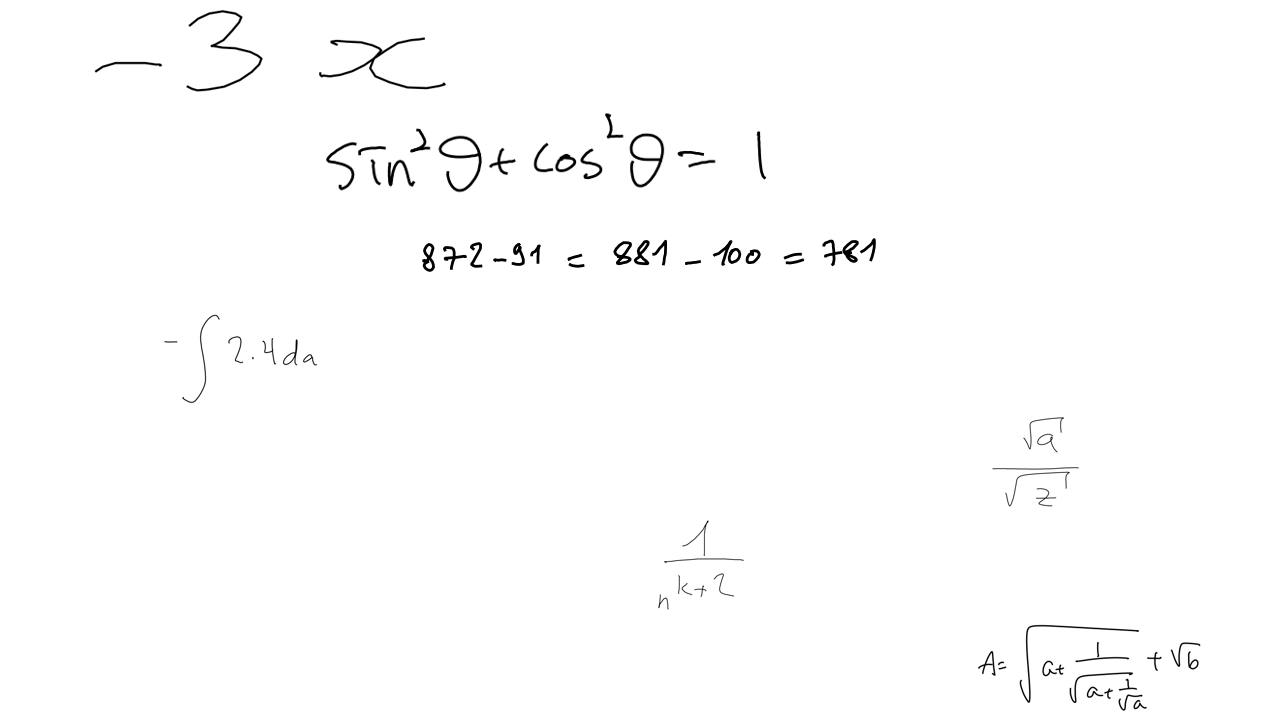 -3x
sin²θ+cos²θ=1
872-91 = 881-100 = 781
-∫2.4da
√a/√z
1/n^(k+2)
A=√(a+1/√(a+1/√a))+√b